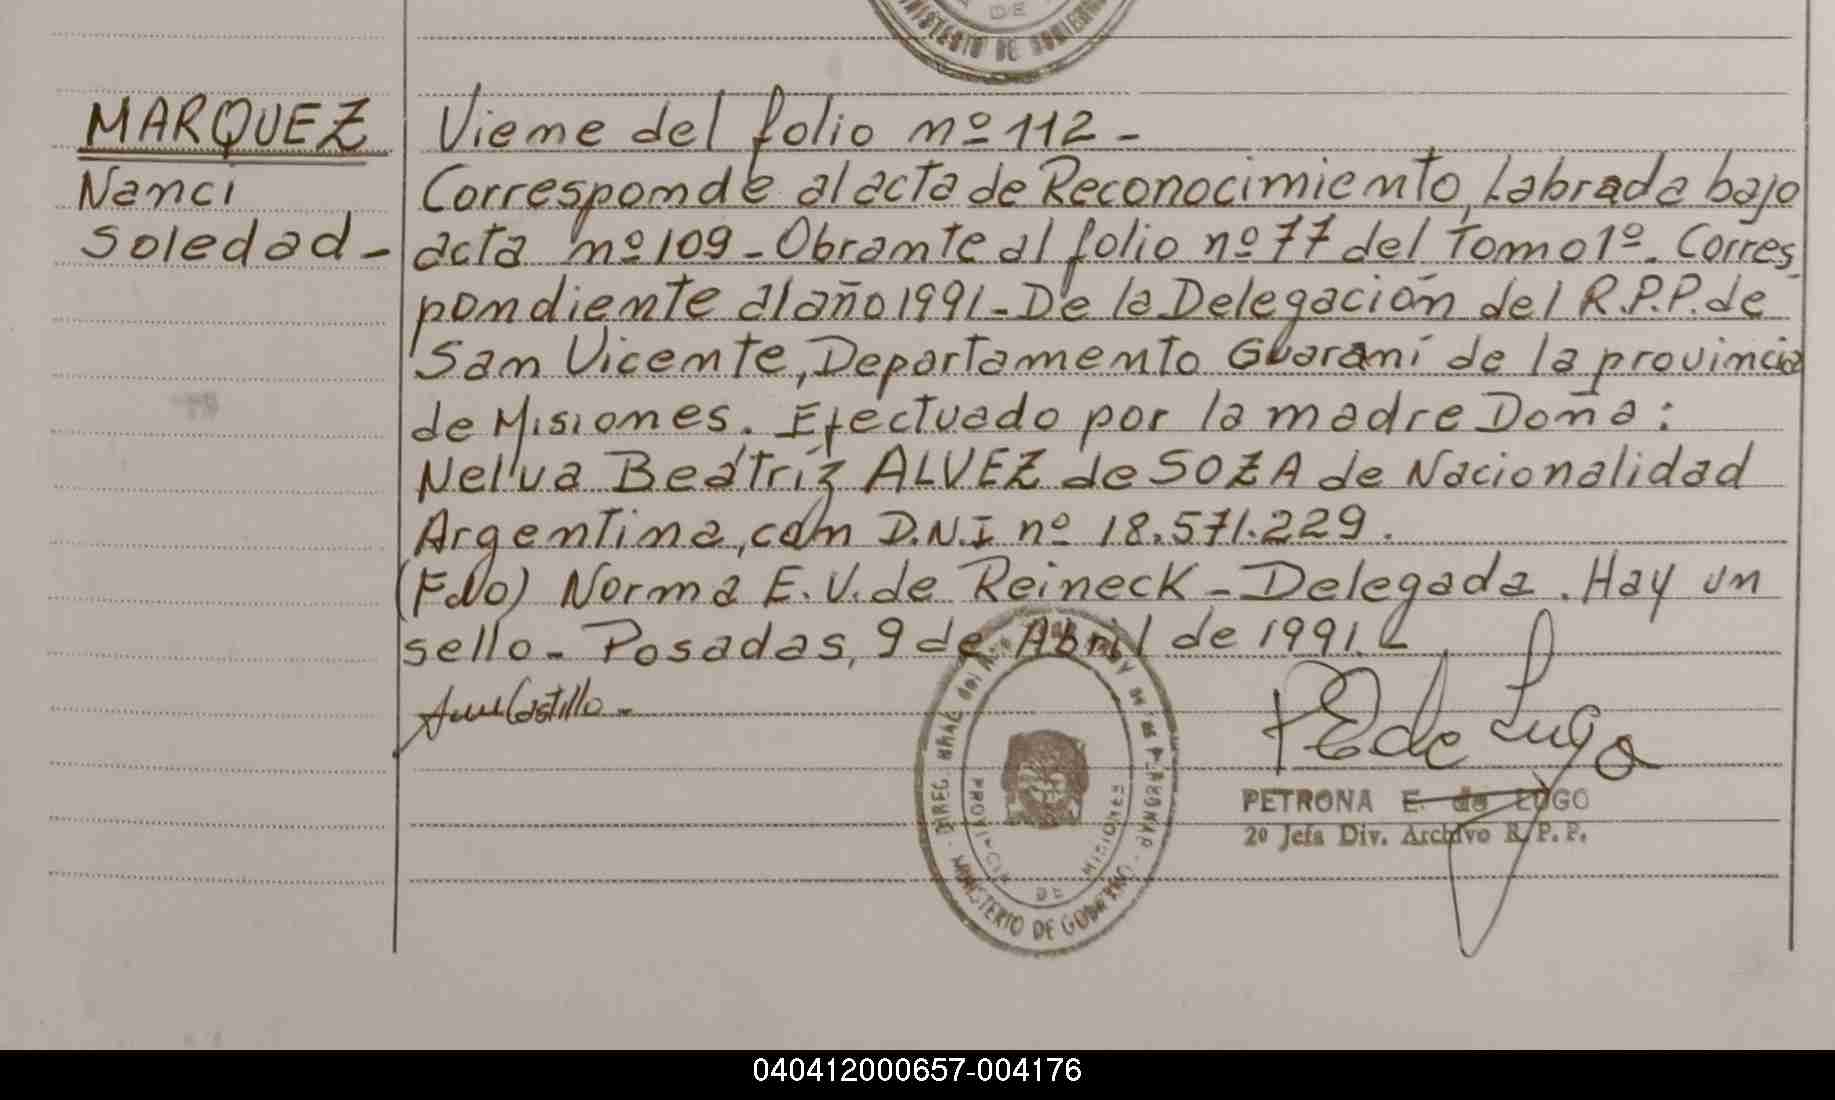 MINISTERIO DE GOBIERNO
DE
MARQUEZ
Nanci
Soledad -
Viene del folio nº 112 -
Corresponde al acta de Reconocimiento, Labrada bajo
acta nº 109 - Obrante al folio nº 77 del Tomo 1º. Corres
pondiente al año 1991 - De la Delegación del R.P.P. de
San Vicente, Departamento Guaraní de la provincia
de Misiones. Efectuado por la madre Doña:
Nelva Beatríz ALVEZ de SOZA de Nacionalidad
Argentina, con D.N.I nº 18.571.229.
(Fdo) Norma E. V. de Reineck - Delegada. Hay un
sello - Posadas, 9 de Abril de 1991. -
Castillo -
PEde Lugo
PETRONA E. de LUGO
2º Jefa Div. Archivo R.P.P.
PROVINCIA DE MISIONES
MINISTERIO DE GOBIERNO
040412000657-004176